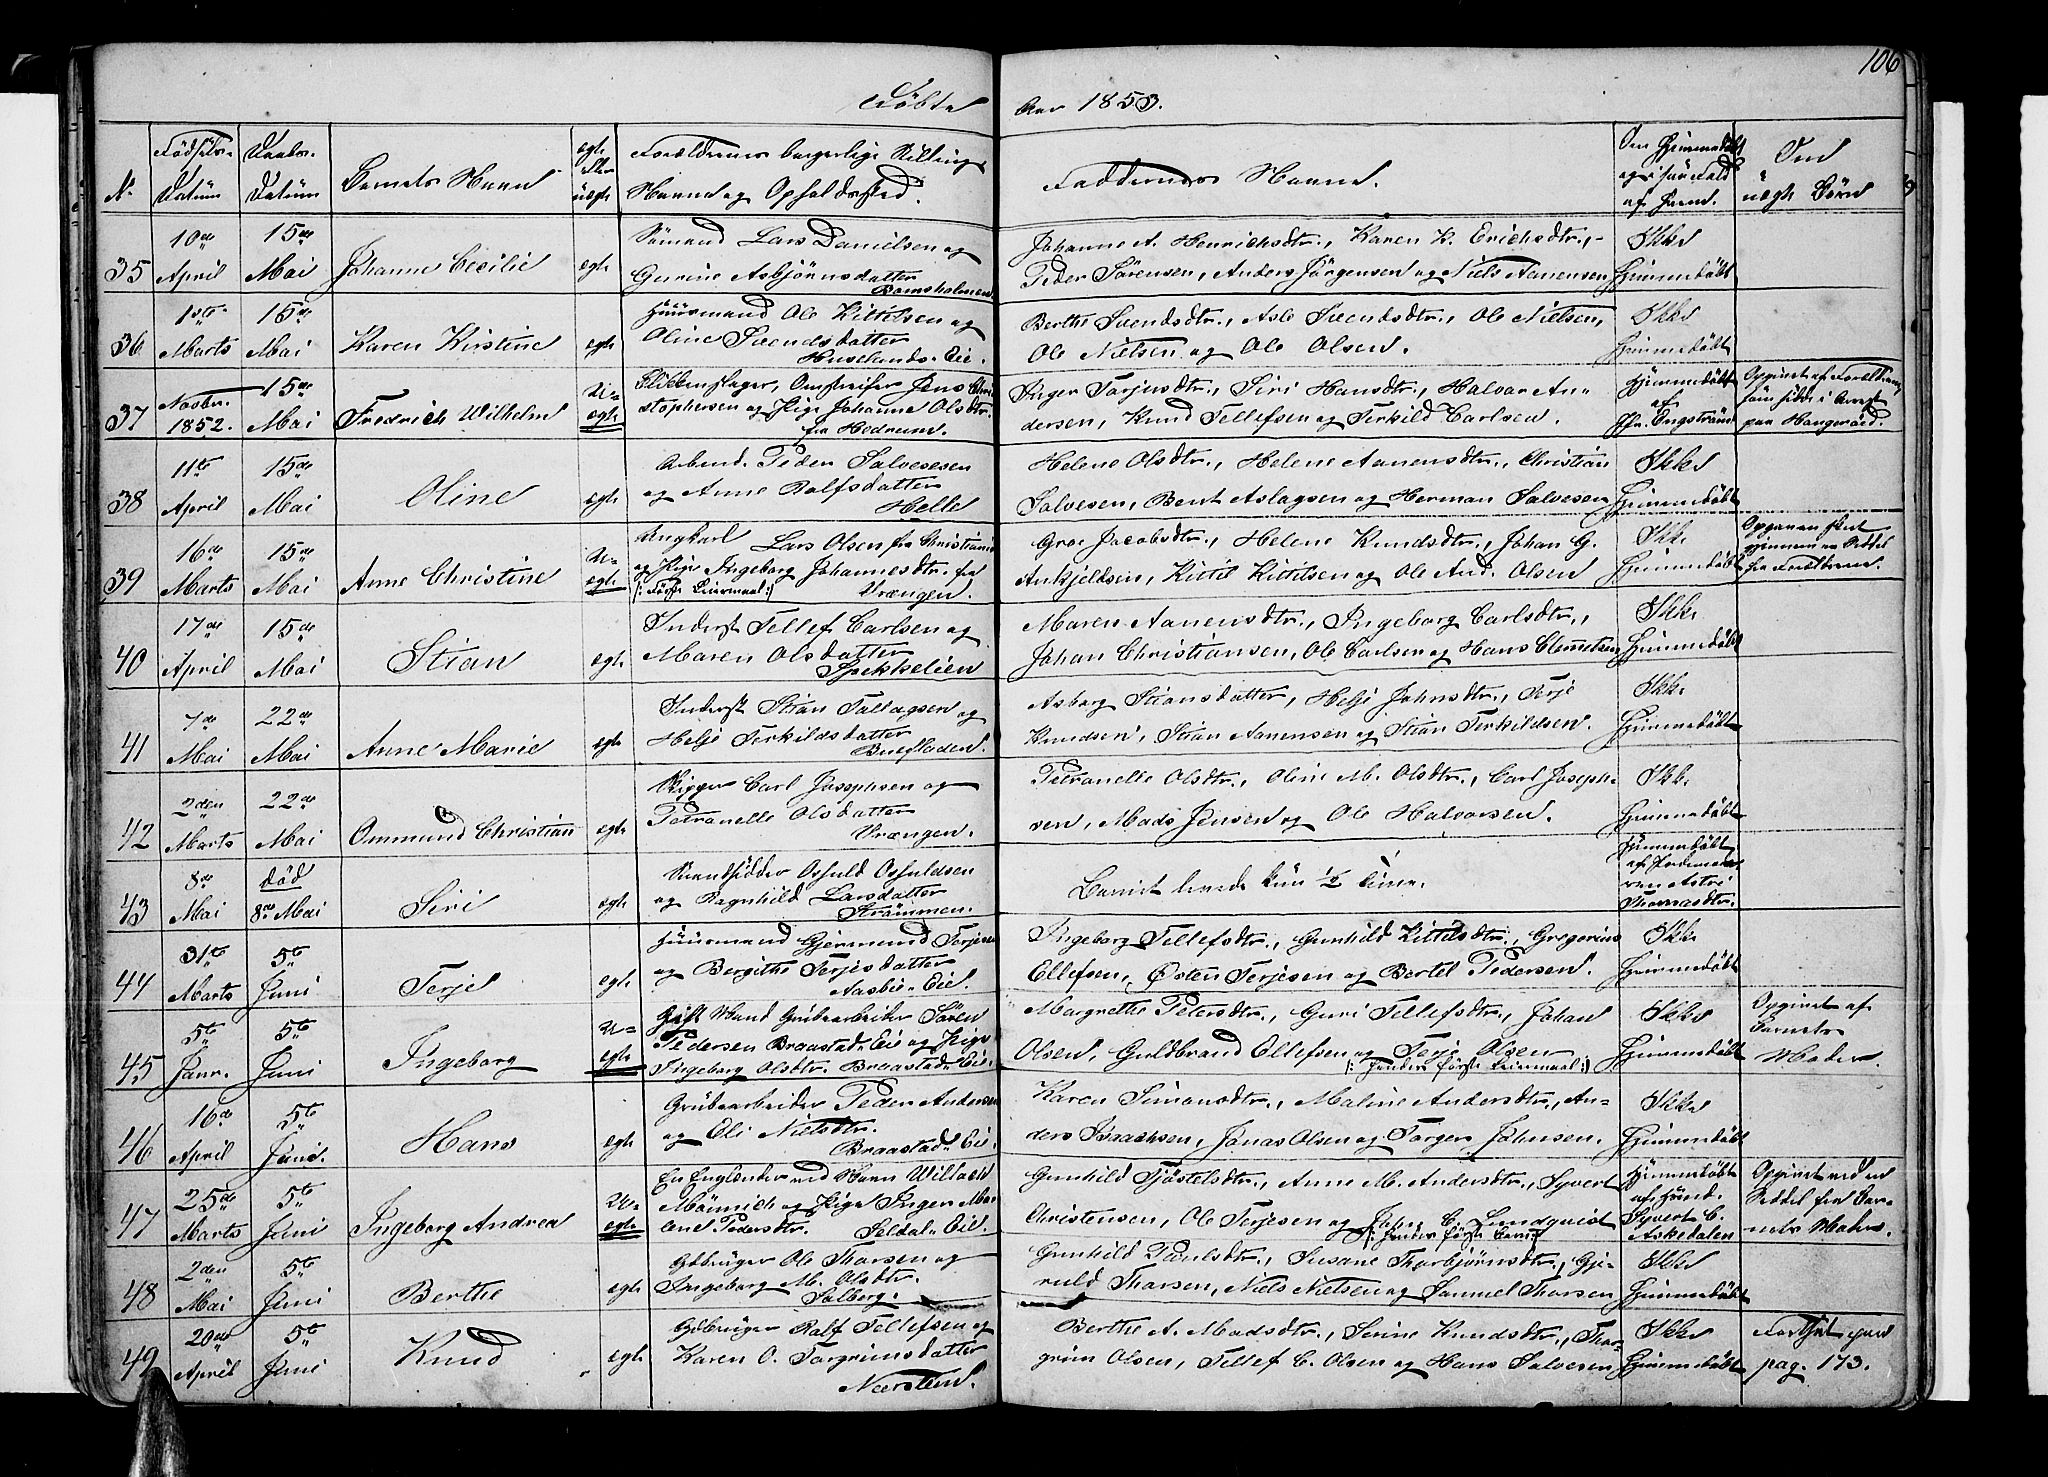 106
Døbte
Aar 1853.
N.
Fødsels-
Datum
Daabs-
Datum
Barnets Navn
ægte
eller
uægte
Forældrenes borgerlige Stilling
Navn og Opholdssted.
Faddernes Navne.
Om hjemmedøbt
og i saa Fald
af hvem.
Om
uægte Børn
35
10de
April
15de
Mai
Johanne Cecilie
ægte
Sømand Lars Danielsen og
Gurine Asbjørnsdatter
Johanne A. Henrichsdtr., Karen K. Erichsdtr.,
Peder Sørensen, Anders Jørgensen og Niels Aanensen
Ikke
hjemmedøbt
36
1ste
Marts
15de
Mai
Karen Kirstine
ægte
Huusmand Ole Kittelsen og
Oline Svendsdatter
Huselands-Eie.
Berthe Svendsdtr., Asle Svendsdtr., Ole Nielsen,
Ole Nielsen og Ole Olsen.
Ikke
hjemmedøbt
37
Novbr.
1852.
15de
Mai
Fredrich Wilhelm
U=
ægte
Blikkenslager, Omstreifer Jens Chri
stophersen og Pige Johanne Olsdtr.
fra Hedrum.
Inger Torjusdtr., Siri Hansdtr., Halvor An-
dersen, Knud Tellefsen og Terkild Carlsen.
hjemmedøbt
af
Engstrøm
Opgivet af Forældrene,
som sidder i Arrest
paa
38
11te
April
15de
Mai
Oline
ægte
Arbmd. Peder Salvesen
og Anne Rolfsdatter
Helle
Helene Olsdtr., Helene Aanensdtr., Christian
Salvesen, Bent Aslagsen og Herman Salvesen
Ikke
hjemmedøbt
39
16de
Marts
15de
Mai
Anne Christine
U=
ægte
Ungkarl Lars Olsen fra Christiania
og Pige Ingeborg Johannesdtr. fra
/: Første Leiermaal :/ Vrængen.
Groe Jacobsdtr., Helene Knudsdtr., Johan G.
Ankjeldsen, Kittil Kittilsen og Ole And. Olsen
Ikke
hjemmedøbt
Opgaven skeet
gjennem en Seddel
fra Forældrene.
40
17de
April
15de
Mai
Stian
ægte
Inderst Tellef Carlsen og
Maren Olsdatter
Maren Aanensdtr., Ingeborg Carlsdtr.,
Johan Christiansen, Ole Carlsen og Hans Clemetsen
Ikke
hjemmedøbt
41
7de
Mai
22de
Mai
Anne Marie
ægte
Inderst Stian Tallagsen og
Helje Terkildsdatter
Buefladen.
Asborg Stiansdatter, Helje Johnsdtr., Terje
Knudsen, Stian Aanensen og Stian Terkildsen.
Ikke
hjemmedøbt
42
2den
Marts
22de
Mai
Ommund Christian
ægte
Rigger Carl Josephsen og
Petronelle Olsdatter
Vrængen.
Petronelle Olsdtr., Oline M. Olsdtr., Carl Joseph-
sen, Mads Jensen og Ole Halvorsen.
Ikke
hjemmedøbt
43
8de
Mai
død
8de Mai
Siri
ægte
Strandsidder Osfuld Osfuldsen
og Ragnhild Larsdatter
Strømmen.
Barnet levede kun 1/2 Time.
hjemmedøbt
af Jordemode-
ren Astri
Thomasdtr.
44
31te
Marts
5te
Juni
Terjel
ægte
Huusmand Gjermund Torjesen
og Bergithe Terjesdatter
Aasbie-Eie.
Ingeborg Tellefsdtr., Gunhild Kittilsdtr., Gregorius
Ellefsen, Østen Terjesen og Bertel Pedersen.
Ikke
hjemmedøbt
45
5te
Janr.
5te
Juni
Ingeborg
U=
ægte
Gift Mand Grubearbeider Søren
Pedersen Braastad-Eie og Pige
Ingeborg Olsdtr. Braastad-Eie.
Margrethe Petersdtr., Guri Tellefsdtr., Johan
Olsen, Guldbrand Ellefsen og Terje Olsen
/: hendes første Leiermaal :/
Ikke
hjemmedøbt
Opgivet af
Barnets
Moder
46
16de
April
5te
Juni.
Hans
ægte
Grubearbeider Peder Andersen
og Eli Nielsdtr.
Braastad-Eie.
Karen Simonsdtr., Maline Andersdtr., An-
ders Isaachsen, Jonas Olsen og Torger Johnsen.
Ikke
hjemmedøbt
47
25de
Marts
5te
Juni
Ingeborg Andrea
U=
ægte
En Englænder ved Navn Wilhelm
Münnich og Pige Inger Ma-
lene Pedersdtr. Seldal-Eie.
Gunhild Tjøstelsdtr., Anne M. Andersdtr., Syvert
Christensen, Ole Terjesen og John C. Lundqvist
/: hendes første Barn :/
hjemmedøbt
af
Syvert C.
Askedalen
Opgivet ved en
Seddel fra Bar-
nets Moder.
48
2den
Mai
5te
Juni
Berthe
ægte
Gdbruger Ole Thorsen og
Ingeborg M. Olsdtr.
Solberg.
Gunhild Paulsdtr., Susane Thorbjørnsdtr., Gje-
ruld Thorsen, Niels Nielsen og Samuel Thorsen
Ikke
hjemmedøbt
49
20de
April
5te
Juni
Knud
ægte
Gdbruger Rolf Tellefsen og
Karen O. Torgrimsdatter
Næsteen.
Berthe A. Madsdtr., Serine Knudsdtr., Thor-
grim Olsen, Tellef C. Olsen og Hans Salvesen
Ikke
hjemmedøbt
Fortsat paa
pag. 173.